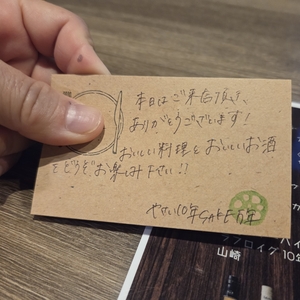 本日はご来店頂き、
ありがとうございます！
おいしい料理とおいしいお酒
をどうぞお楽しみ下さい!!
やさい10年SAKE百年
ハイ
ラフロイグ10年
山崎